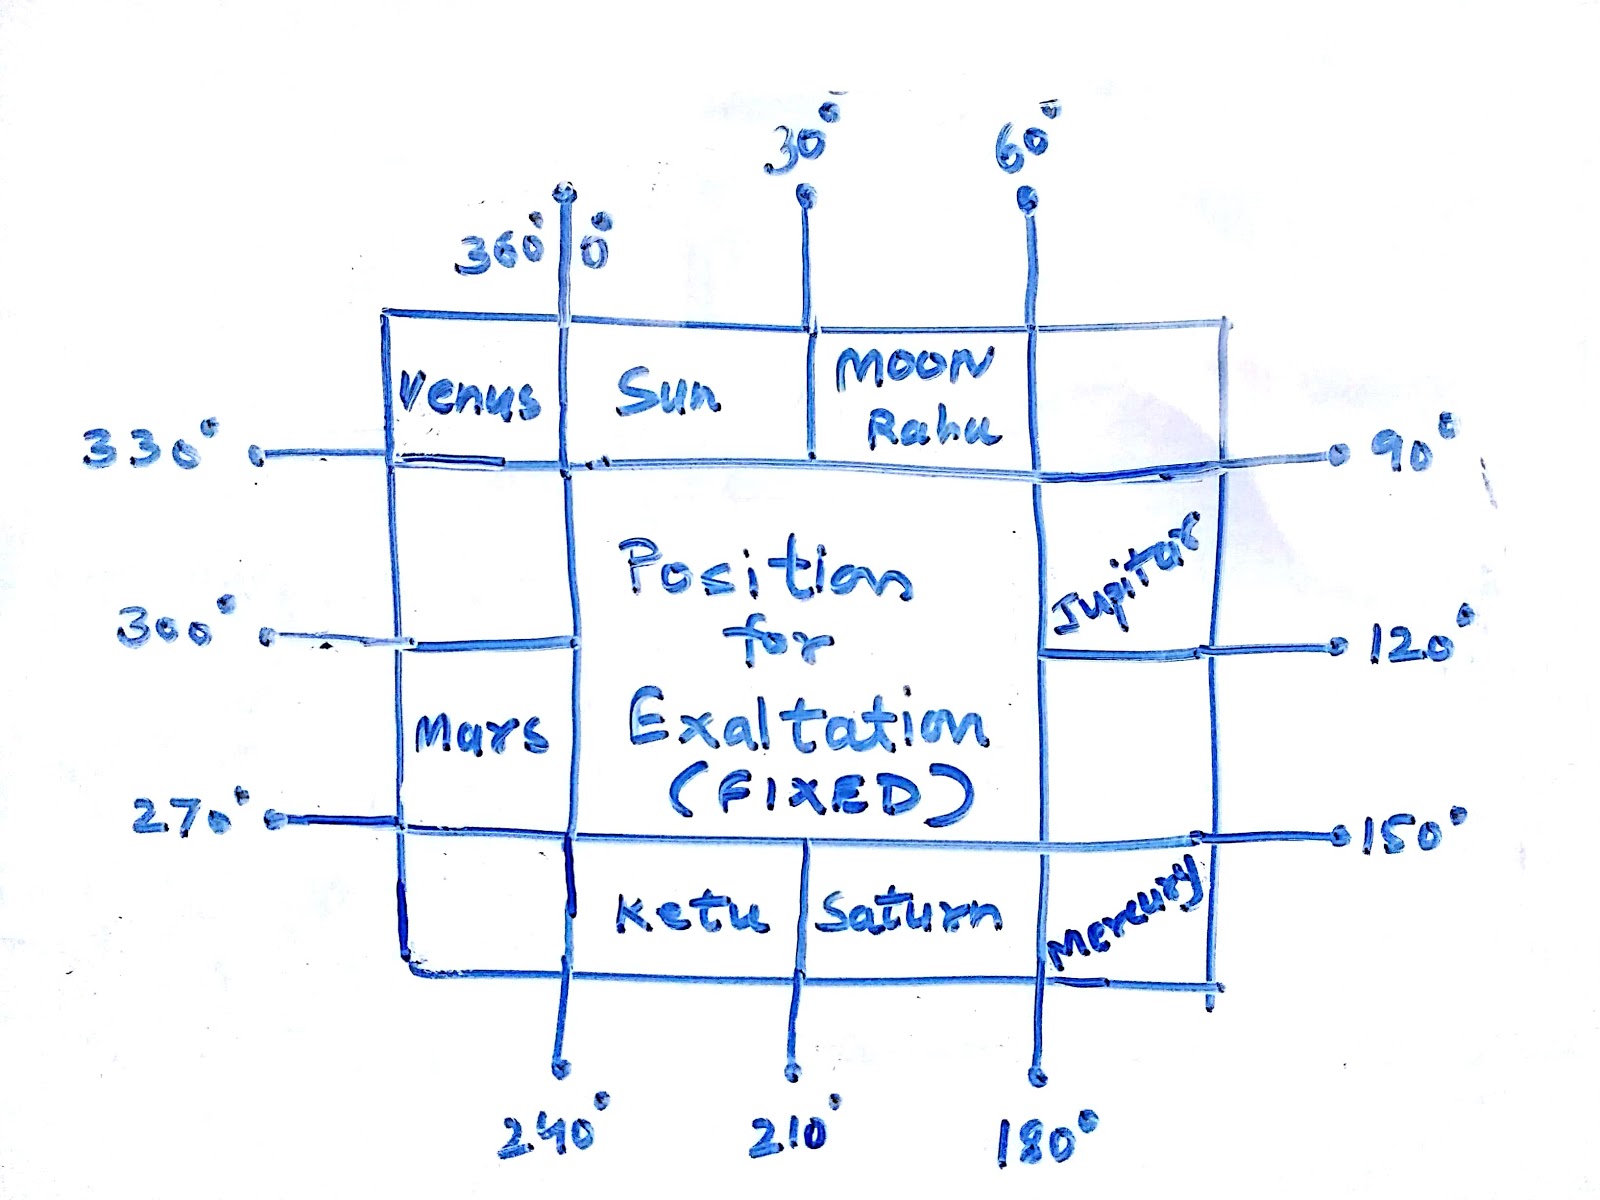 30°
60°
360° 0°
Venus
Sun
MOON
Rahu
330°
90°
Position
for
Exaltation
(FIXED)
Jupitar
300°
120°
Mars
270°
150°
Ketu
Saturn
Mercury
240°
210°
180°